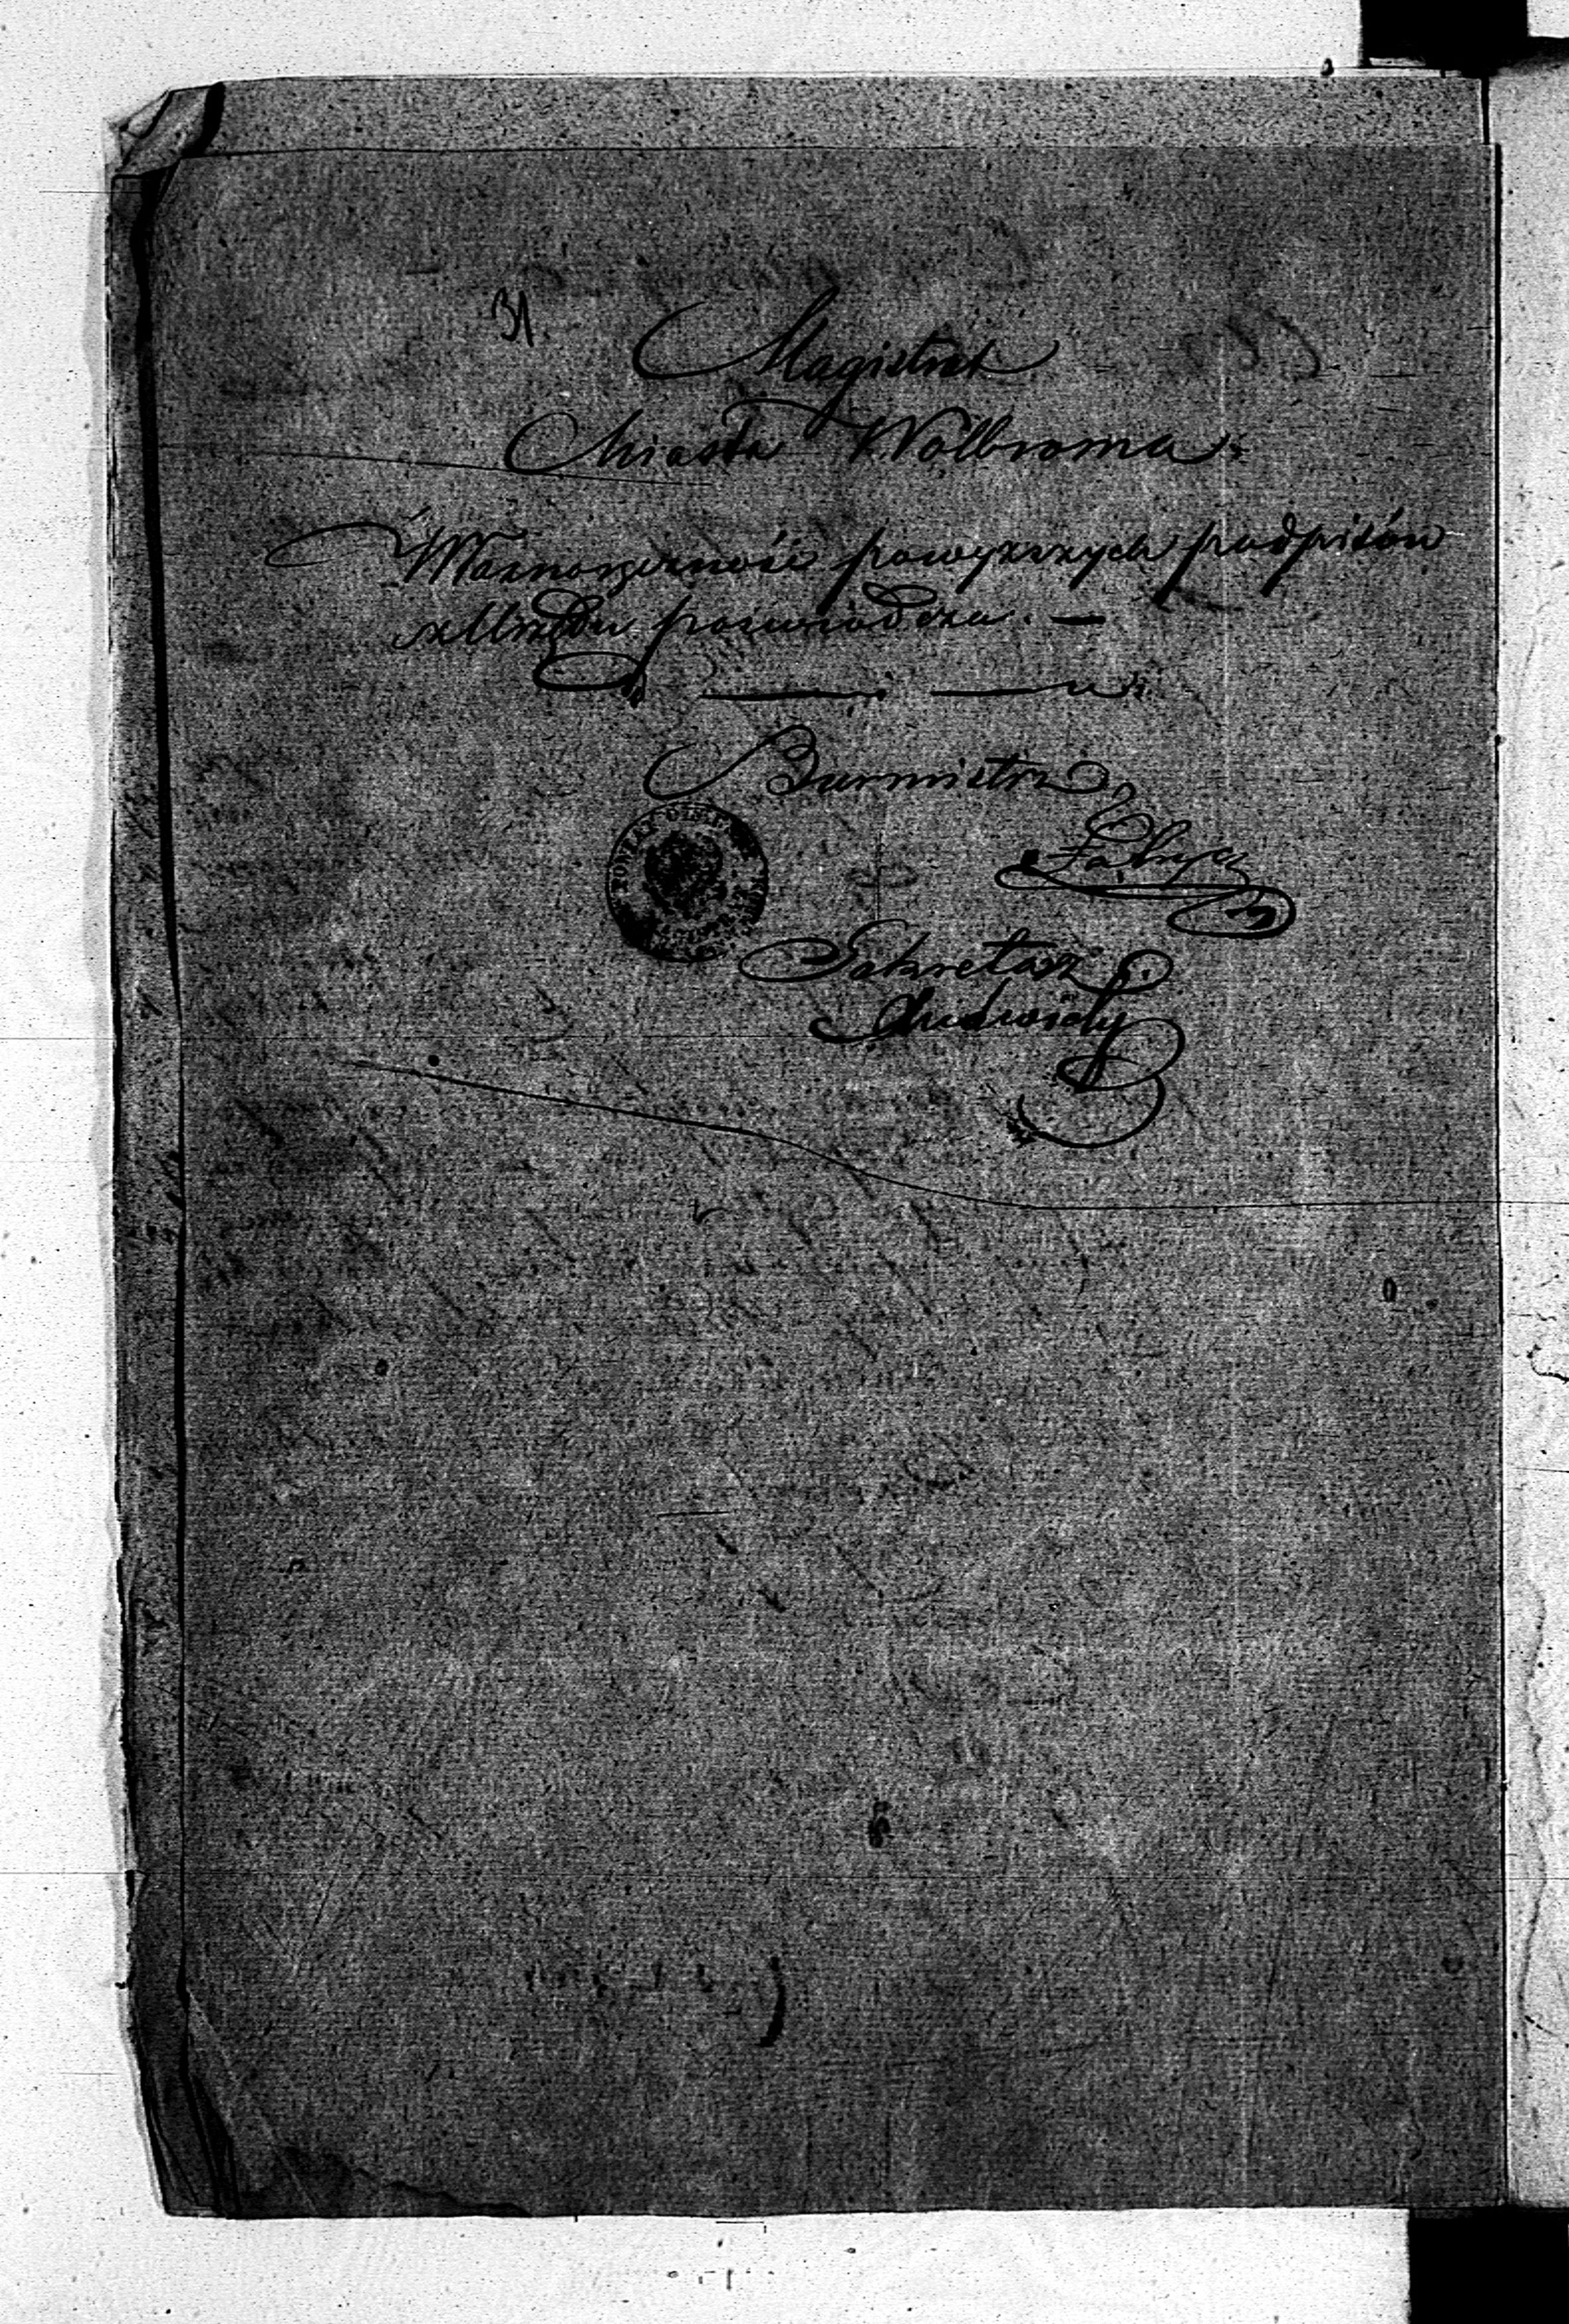 31.
Magistrat
Miasta Wolbroma
Własnoręczność powyższych podpisów
z Urzędu poświadcza. —
Burmistrz
Sekretarz